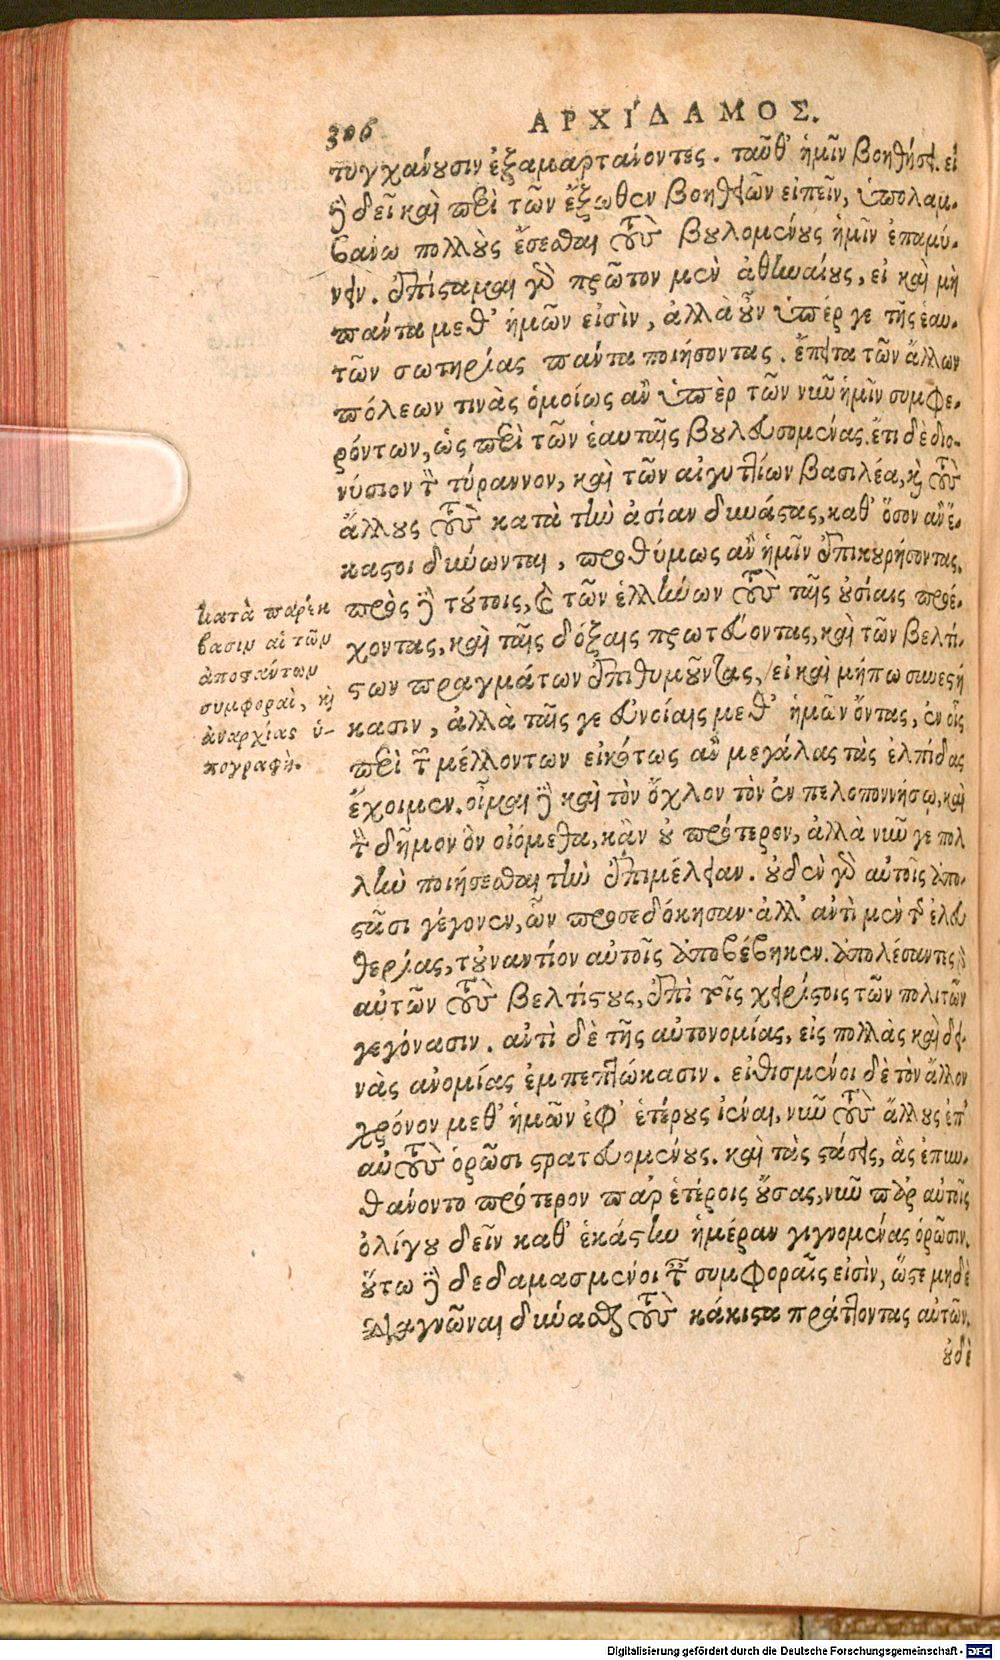 306
ΑΡΧΙΔΑΜΟΣ.
τυγχάνουσιν ἐξαμαρτάνοντες. ταῦθ' ἡμῖν βοηθήσει. εἰ
δὲ δεῖ καὶ περὶ τῶν ἔξωθεν βοηθειῶν εἰπεῖν, ὑπολαμ-
βάνω πολλοὺς ἔσεσθαι τοὺς βουλομένους ἡμῖν ἐπαμύ-
νειν. ἐπίσταμαι γὰρ πρῶτον μὲν ἀθηναίους, εἰ καὶ μὴ
πάντα μεθ' ἡμῶν εἰσὶν, ἀλλὰ οὖν ὑπέρ γε τῆς ἑαυ-
τῶν σωτηρίας πάντα ποιήσοντας. ἔπειτα τῶν ἄλλων
πόλεων τινὰς ὁμοίως ἂν ὑπὲρ τῶν νῦν ἡμῖν συμφε-
ρόντων, ὡς περὶ τῶν ἑαυταῖς βουλευσομένας. ἔτι δὲ διο-
νύσιον τὸν τύραννον, καὶ τῶν αἰγυπτίων βασιλέα, καὶ τοὺς
ἄλλους τοὺς κατὰ τὴν ἀσίαν δυνάστας, καθ' ὅσον ἂν ἕ-
καστοι δύνωνται, προθύμως ἂν ἡμῖν ἐπικουρήσοντας.
πρὸς δὲ τούτοις, καὶ τῶν ἑλλήνων τοὺς ταῖς οὐσίαις προέ-
χοντας, καὶ ταῖς δόξαις πρωτεύοντας, καὶ τῶν βελτί-
στων πραγμάτων ἐπιθυμοῦντας, εἰ καὶ μήπω συνεστή
κασιν, ἀλλὰ ταῖς γε εὐνοίαις μεθ' ἡμῶν ὄντας, ἐν οἷς
περὶ τῶν μέλλοντων εἰκότως ἂν μεγάλας τὰς ἐλπίδας
ἔχοιμεν. οἶμαι δὲ καὶ τὸν ὄχλον τὸν ἐν πελοποννήσῳ, καὶ
τὸν δῆμον ὃν οἰόμεθα, κἂν οὐ πρότερον, ἀλλὰ νῦν γε πολ
λὴν ποιήσεσθαι τὴν ἐπιμέλειαν. οὐδὲν γὰρ αὐτοῖς ἀπο-
στᾶσι γέγονεν, ὧν προσεδόκησαν· ἀλλ' ἀντὶ μὲν τῆς ἐλευ
θερίας, τοὐναντίον αὐτοῖς ἀποβέβηκεν. ἀπολέσαντες γὰρ
αὐτῶν τοὺς βελτίστους, ἐπὶ τοῖς χειρίστοις τῶν πολιτῶν
γεγόνασιν. ἀντὶ δὲ τῆς αὐτονομίας, εἰς πολλὰς καὶ δει-
νὰς ἀνομίας ἐμπεπτώκασιν. εἰθισμένοι δὲ τὸν ἄλλον
χρόνον μεθ' ἡμῶν ἐφ' ἑτέρους ἰέναι, νῦν τοὺς ἄλλους ἐπ'
αὐτοὺς ὁρῶσι στρατευομένους. καὶ τὰς στάσεις, ἃς ἐπυν-
θάνοντο πρότερον παρ' ἑτέροις οὔσας, νῦν παρ' αὐτοῖς
ὀλίγου δεῖν καθ' ἑκάστην ἡμέραν γιγνομένας ὁρῶσιν.
οὕτω δὲ δεδαμασμένοι ταῖς συμφοραῖς εἰσὶν, ὥστε μηδὲ
διαγνῶναι δύνασθαι τοὺς κάκιστα πράττοντας αὐτῶν.
οὐδὲ
κατὰ παρέκ
βασιν αἱ τῶν
ἀποστάντων
συμφοραὶ, καὶ
ἀναρχίας ὑ-
πογραφὴ.
Digitalisierung gefördert durch die Deutsche Forschungsgemeinschaft - DFG